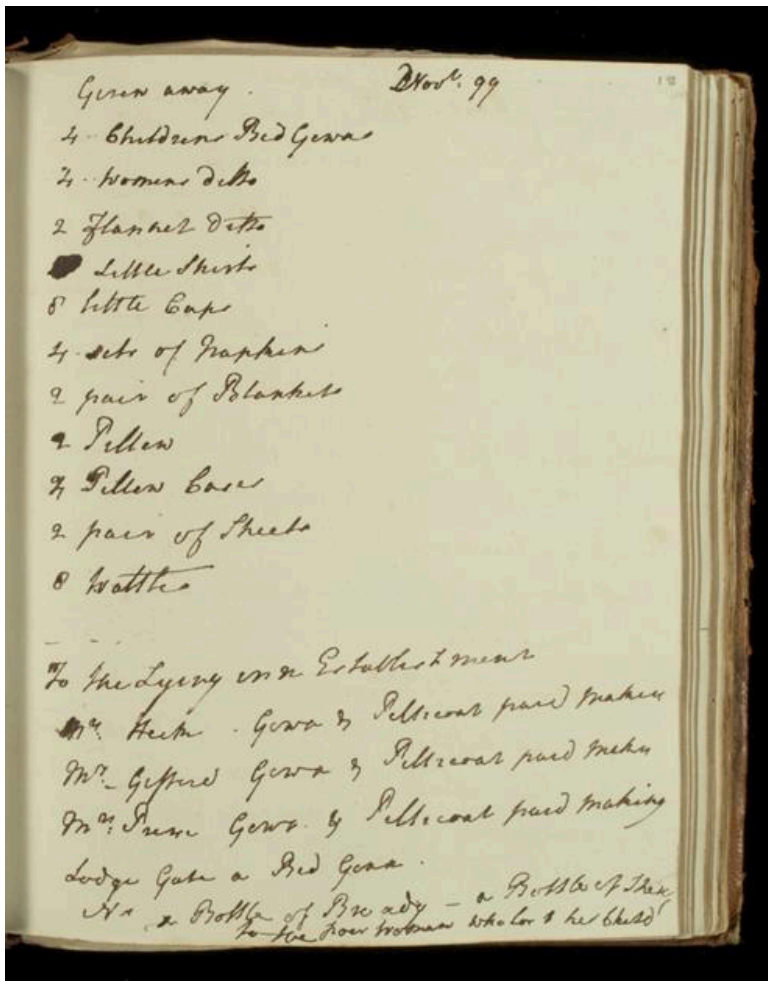 Given away. Novr. 99
4 Childrens Bed Gowns
4 Womens Ditto
2 flannel Ditto
Little Shirts
8 little Caps
4 sets of Napkins
2 pair of Blankets
2 Pillow
4 Pillow Cases
2 pair of Sheets
8
To the Lying inn Establishment
Mrs. Gown & Petticoat paid making
Mrs. Gifford Gown & Petticoat paid making
Mrs. Gown & Petticoat paid making
Lodge Gate a Bed Gown.
a Bottle of Brandy – a Bottle of
to the poor Woman who lost her Child